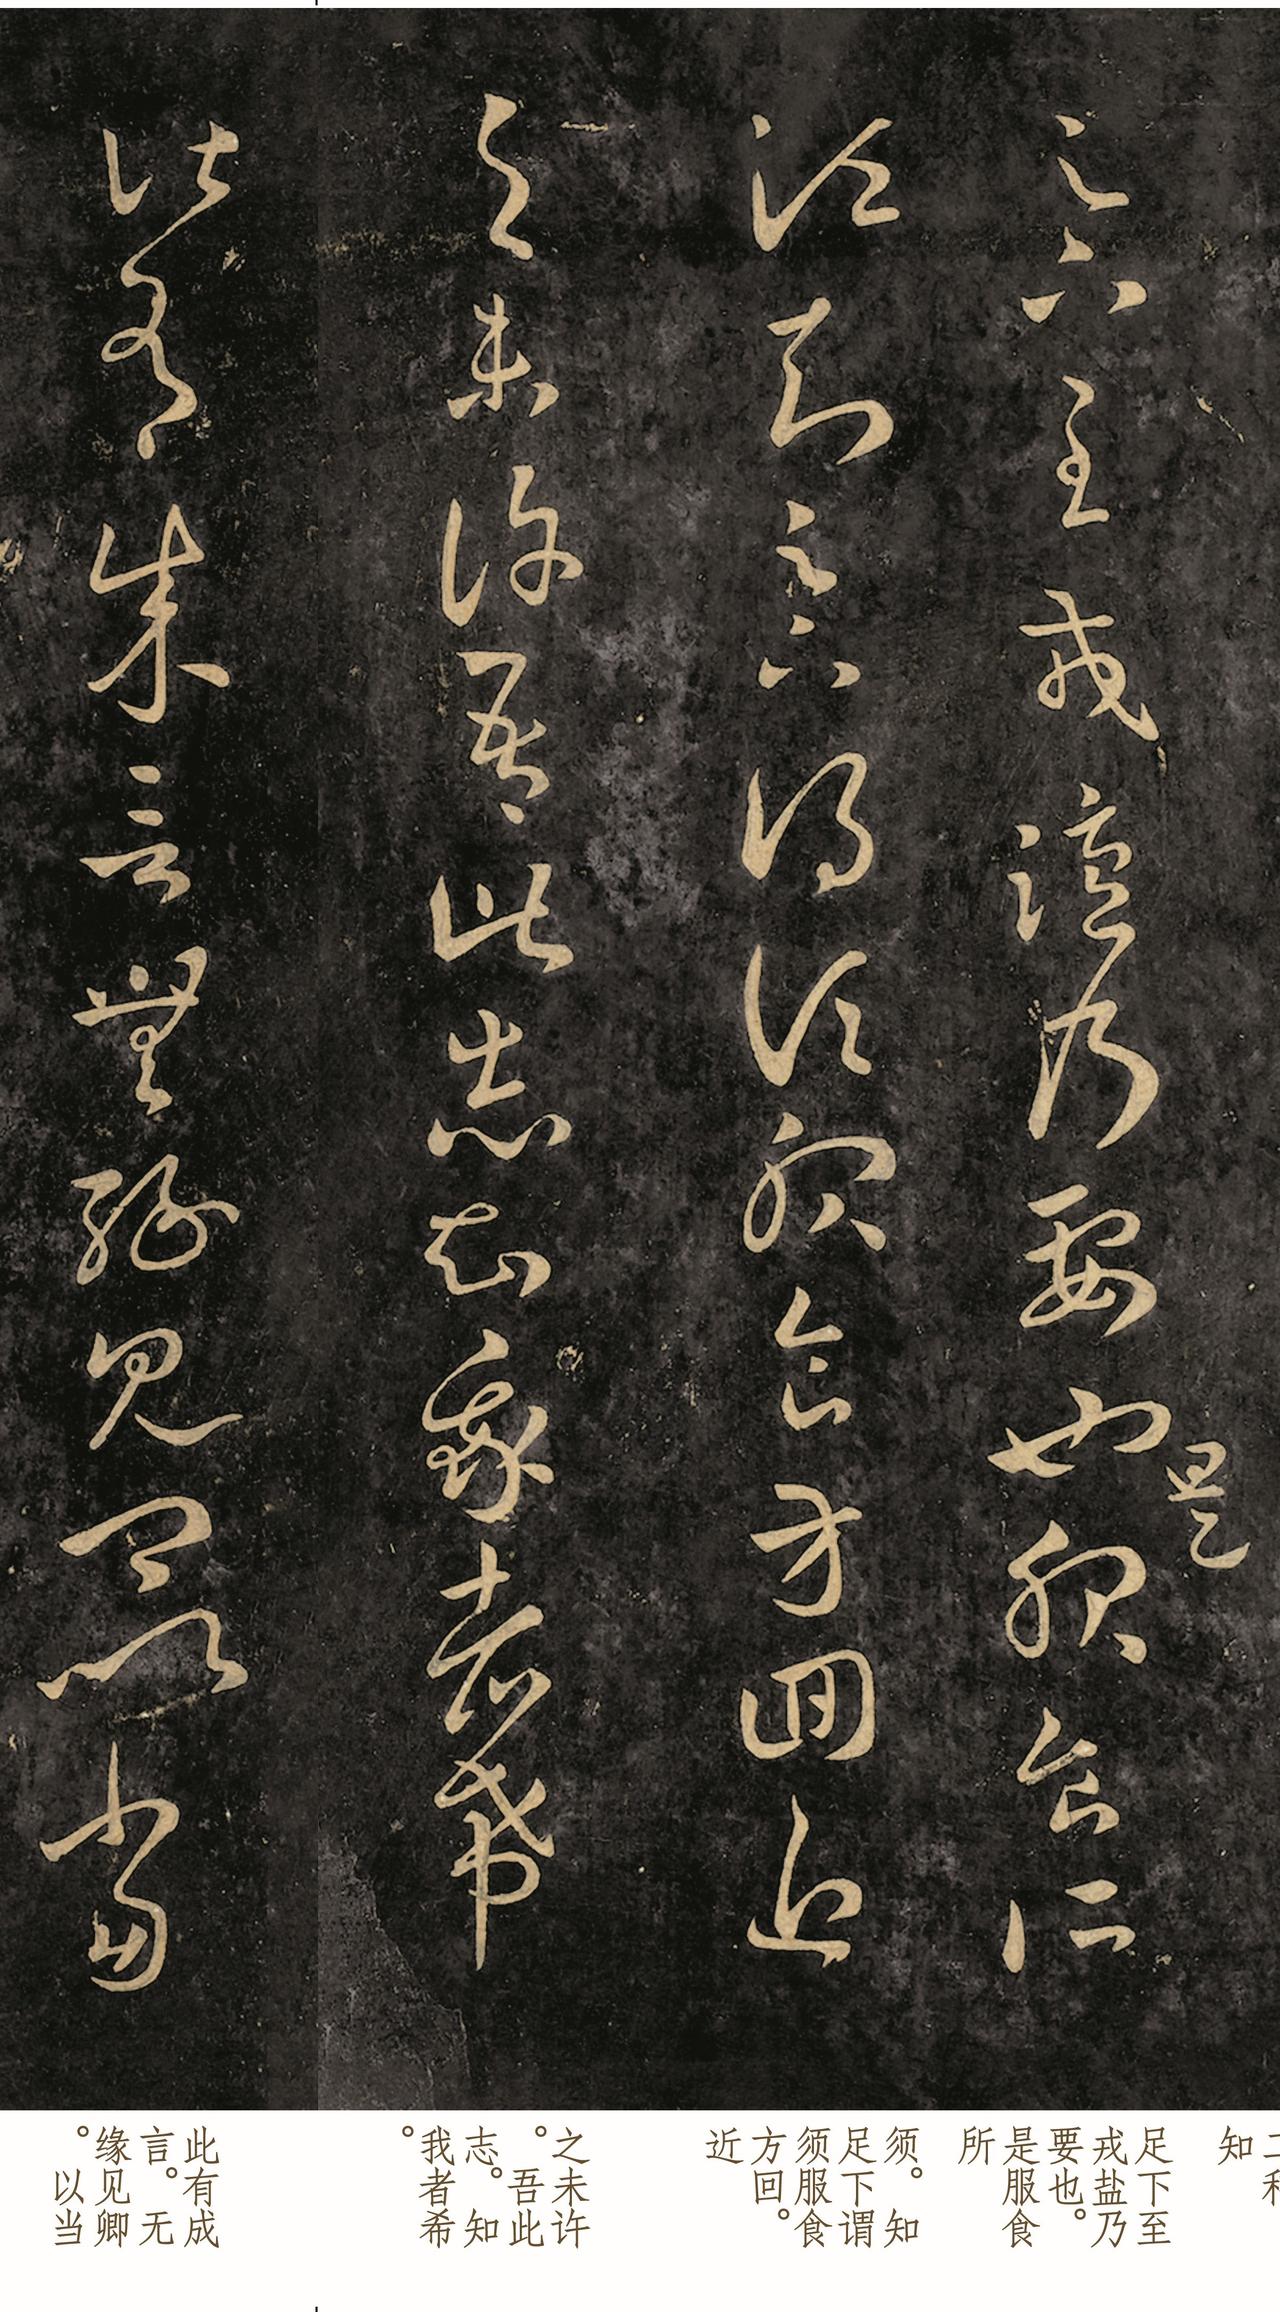 足下至戎盐乃要也是服食所
须知足下谓须服食方回近
之未许吾此志知我者希
此有成言无缘见卿以当
知
足下至
戎盐乃
要也。
是服食
所
须。知
足下谓
须服食
方回。
近
之未许
。吾此
志。知
我者希
。
此有成
言。无
缘见卿
。以当